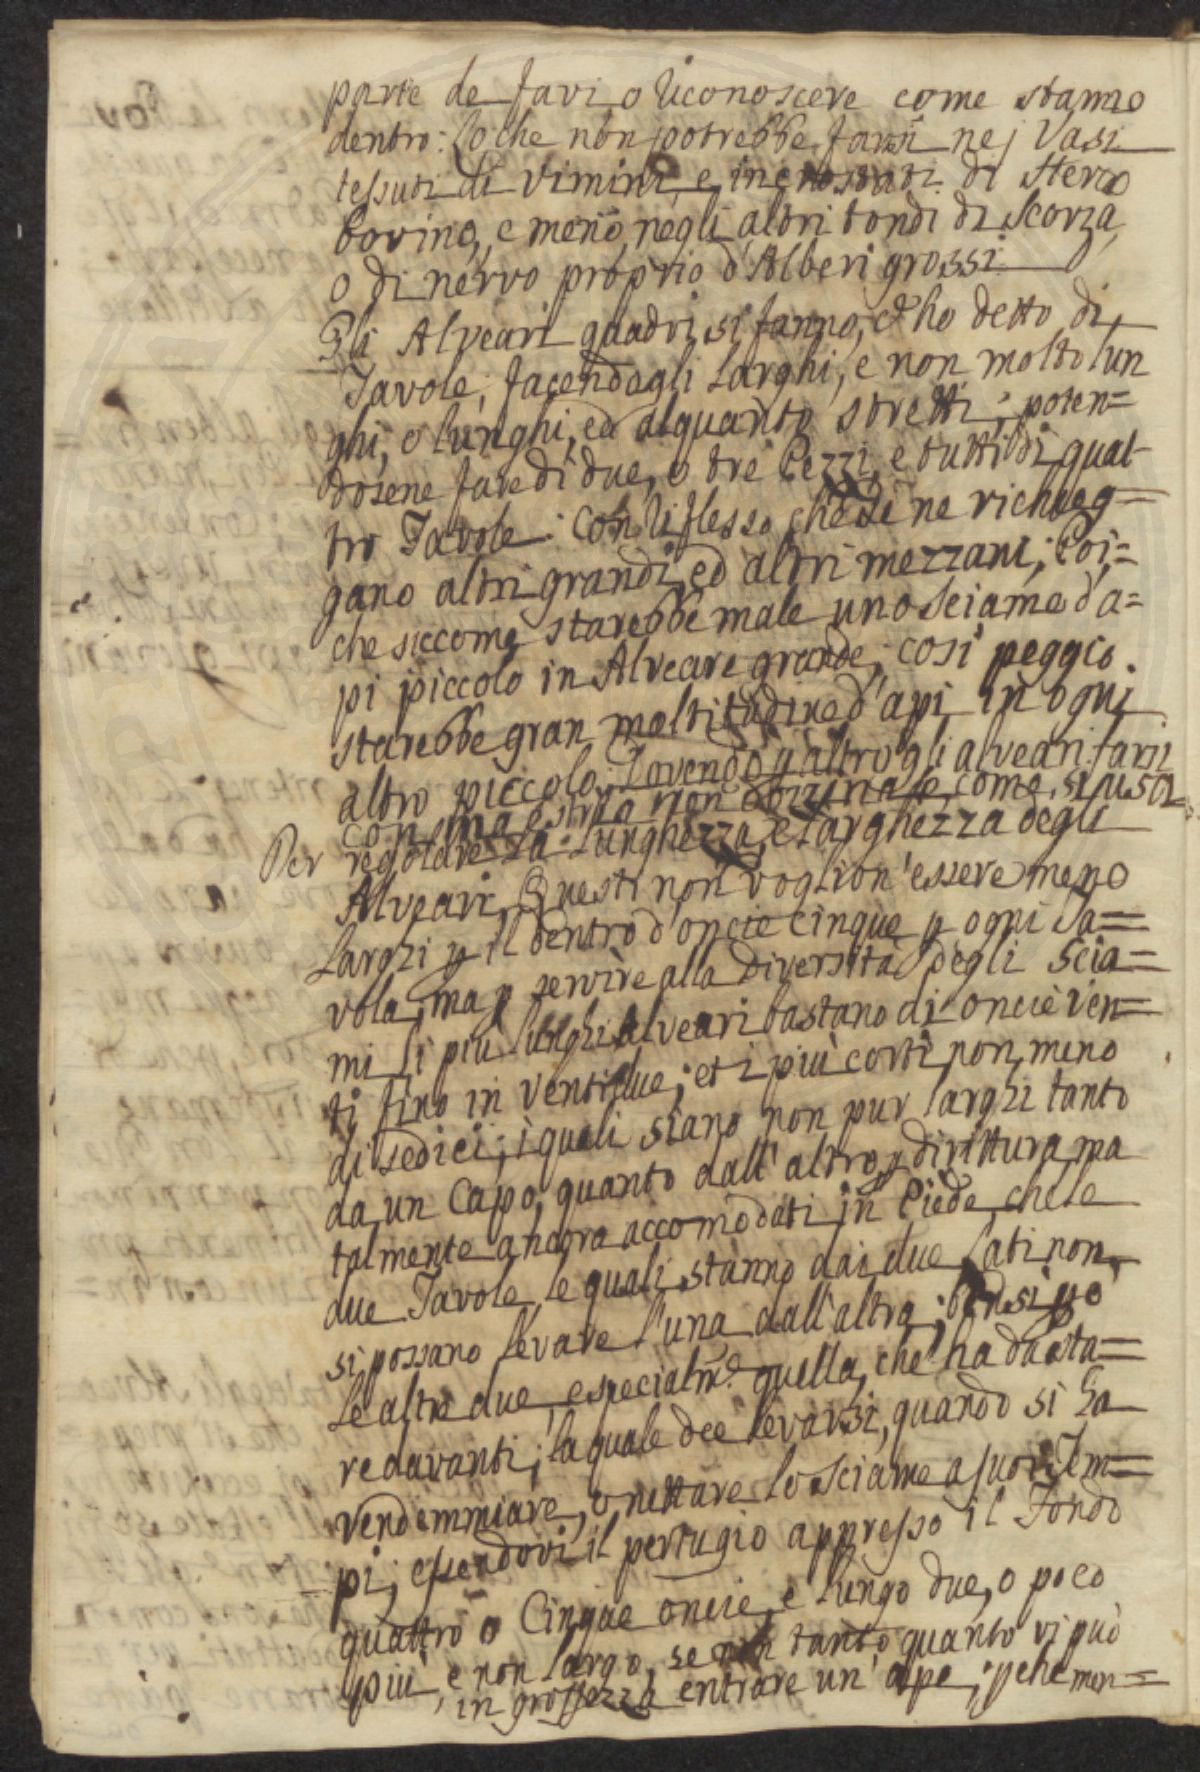 parte de favi o riconoscere come stanno
dentro: lo che non potrebbe farsi nej Vasi
tessuti di vimini, e incrostati di sterco
bovino, e meno negli altri tondi di scorza,
o di nervo proprio d'Alberi grossi.
Gli Alveari quadri si fanno, co' ho detto di
Tavole, facendogli larghi, e non molto lun
ghi, o lunghi, ed alquanto stretti; poten=
dosene fare di due, o tre Pezzi, e tutti di quat-
tro Tavole. Con riflesso, che se ne richieg=
gano altri grandi, ed altri mezzani; Poi=
che siccome starebbe male uno sciame d'a=
pi piccolo in Alveare grande; così peggio
starebbe gran moltitudine d'api in ogni
altro piccolo. Dovendo p altro gli alveari farsi
con maestria non ordinale, come si pusa
Per regolare la lunghezza, e larghezza degli
Alveari. Questi non voglion' essere meno
larghi p il dentro d'oncie cinque p ogni Ta=
vola, ma p servire alla diversità degli Scia=
mi li più lunghi alveari bastano di oncie ven=
ti fino in ventidue; et i più corti non meno
di sedici; i quali siano non pur larghi tanto
da un Capo, quanto dall' altro p dirittura, ma
talmente ancora accomodati in Piede, che le
due Tavole, le quali stanno dai due lati non
si possano levare l'una dall'altra; bensi po'
le altre due, e specialm.e quella, che ha da sta=
re davanti; la quale dee levarsi, quando si ha
vendemmiare, o nettare lo sciame a suoi Tem=
pi; essendovi il pertugio appresso il Fondo
quattro o Cinque oncie, e lungo due, o poco
più, e non largo, se non tanto quanto vi può
in grossezza entrare un' ape; p che men=